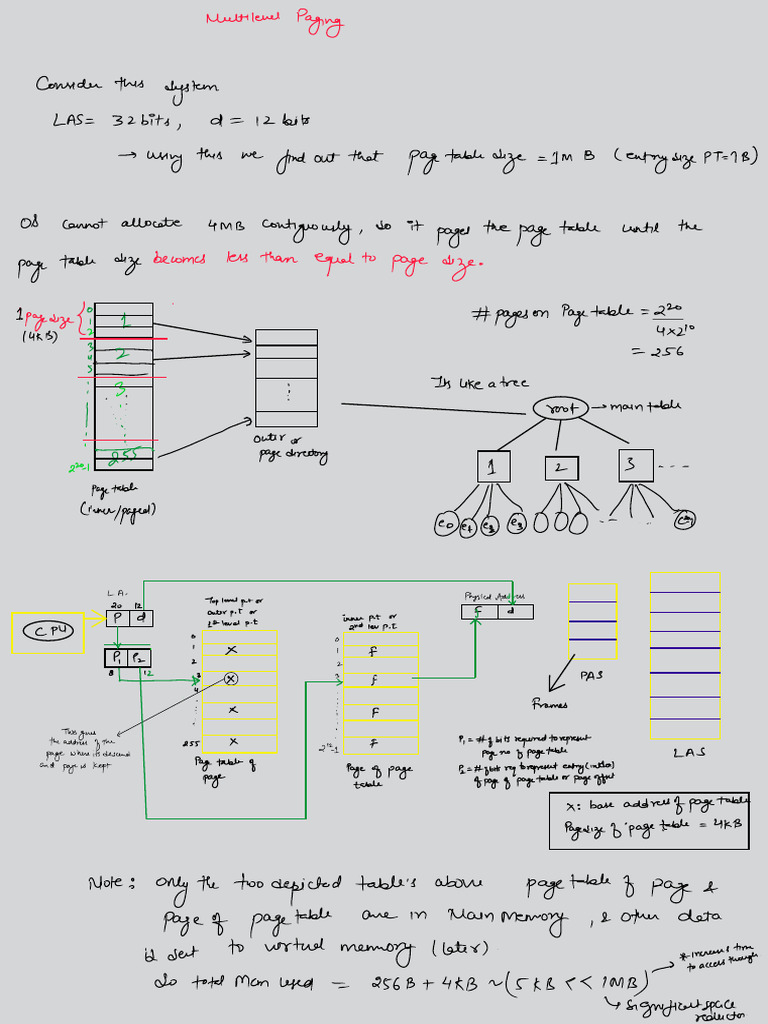 Multilevel Paging
Consider this system
LAS = 32 bits, d = 12 bits
→ using this we find out that page table size = 1M B (entry size PT = 1B)
OS cannot allocate 4MB contiguously, so it pages the page table until the
page table size becomes less than equal to page size.
1 page size
(4KB)
0
1
2
3
4
5
2^20-1
1
2
3
255
Page table
(inner/paged)
outer or
page directory
# pages on Page table = 2^20
4x2^10
= 256
Its like a tree
root → main table
1
2
3
e0 e1 e2 e3
L.A.
20 12
P d
CPU
P1 P2
8 12
Top level p.t or
outer p.T or
1st level p.t
0
1
2
3
4
255
x
x
x
x
Page table of
page
This gives
the address of the
page where its desired
and page is kept
inner p.t or
2nd lev p.T
0
1
2
3
2^12-1
f
f
F
F
Page of page
table
Physical Address
f d
Frames
PAS
LAS
P1 = # of bits required to represent
page no of page table
P2 = # of bit req to represent entry (index)
of page of page table or page offset
x: base address of page table
Pagesize of page table = 4KB
Note: only the too depicted table's above page table of page &
page of page table are in Main Memory, & other data
is sent to virtual memory (later)
So total Mem used = 256B + 4KB ~ (5KB << 1MB)
* increases time
to access though
significant space
reduction